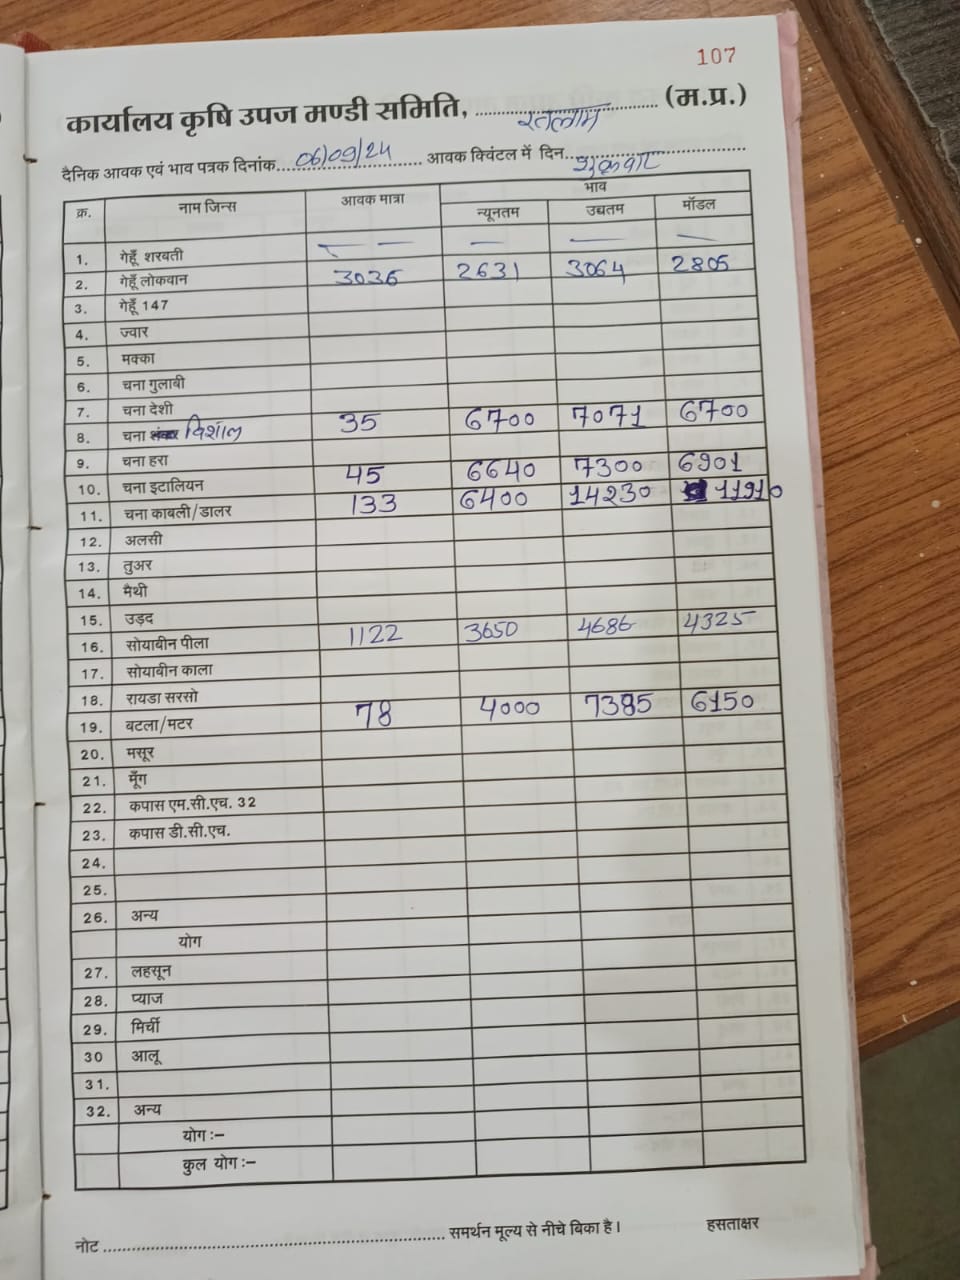 107
कार्यालय कृषि उपज मण्डी समिति, रतलाम (म.प्र.)
दैनिक आवक एवं भाव पत्रक दिनांक 06/09/24 आवक क्विंटल में दिन शुक्रवार
क्र. नाम जिन्स आवक मात्रा भाव
न्यूनतम उच्चतम मॉडल
1. गेहूँ शरबती — — — — —
2. गेहूँ लोकवान 3036 2631 3064 2805
3. गेहूँ 147
4. ज्वार
5. मक्का
6. चना गुलाबी
7. चना देशी
8. चना विशाल 35 6700 7071 6700
9. चना हरा
10. चना इटालियन 45 6640 7300 6901
11. चना काबली/डालर 133 6400 14230 11910
12. अलसी
13. तुअर
14. मैथी
15. उड़द
16. सोयाबीन पीला 1122 3650 4686 4325
17. सोयाबीन काला
18. रायडा सरसो
19. बटला/मटर 78 4000 7385 6150
20. मसूर
21. मूँग
22. कपास एम.सी.एच. 32
23. कपास डी.सी.एच.
24.
25.
26. अन्य
योग
27. लहसून
28. प्याज
29. मिर्ची
30 आलू
31.
32. अन्य
योग :–
कुल योग :–
नोट ........ समर्थन मूल्य से नीचे बिका है। हस्ताक्षर